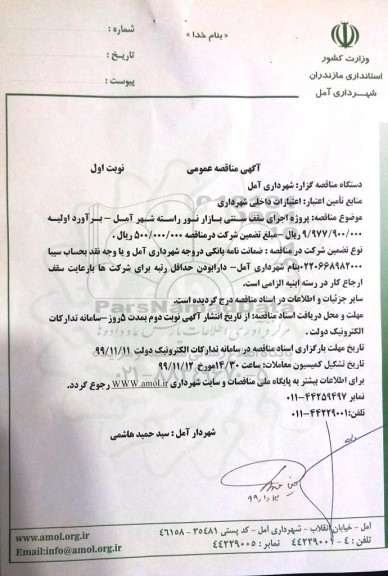 « بنام خدا »
شماره :
تاریخ :
پیوست :
وزارت کشور
استانداری مازندران
شهرداری آمل
آگهی مناقصه عمومی نوبت اول
دستگاه مناقصه گزار: شهرداری آمل
منابع تأمین اعتبار: اعتبارات داخلی شهرداری
موضوع مناقصه: پروژه اجرای سقف سنتی بازار نور راسته شهر آمل – برآورد اولیه
۹/۹۷۷/۹۰۰/۰۰۰ ریال –مبلغ تضمین شرکت درمناقصه ۵۰۰/۰۰۰/۰۰۰ ریال .
نوع تضمین شرکت در مناقصه : ضمانت نامه بانکی دروجه شهرداری آمل و یا وجه نقد بحساب سیبا
۲۲۰۶۶۸۹۸۲۰۰۰بنام شهرداری آمل- دارابودن حداقل رتبه برای شرکت ها بارعایت سقف
ارجاع کار در رسته ابنیه الزامی است.
سایر جزئیات و اطلاعات در اسناد مناقصه درج گردیده است.
مهلت و محل دریافت اسناد مناقصه: از تاریخ انتشار آگهی نوبت دوم بمدت ۵روز –سامانه تدارکات
الکترونیک دولت .
تاریخ مهلت بارگزاری اسناد مناقصه در سامانه تدارکات الکترونیک دولت ۹۹/۱۱/۱۱
تاریخ تشکیل کمیسیون معاملات: ساعت ۱۴/۳۰مورخ ۹۹/۱۱/۱۲
برای اطلاعات بیشتر به پایگاه ملی مناقصات و سایت شهرداری www.amol.ir رجوع گردد.
نمابر ۴۴۲۵۹۴۹۷-۰۱۱
تلفن:۴۴۲۲۹۰۰۱-۰۱۱
شهردار آمل : سید حمید هاشمی
آمل - خیابان انقلاب - شهرداری آمل - کد پستی ۳۵۴۸۱-۴۶۱۵۸
تلفن : ۴-۴۴۲۲۹۰۰۱ نمابر : ۴۴۲۲۹۰۰۵
www.amol.org.ir
Email:info@amol.org.ir
ParsNamadData